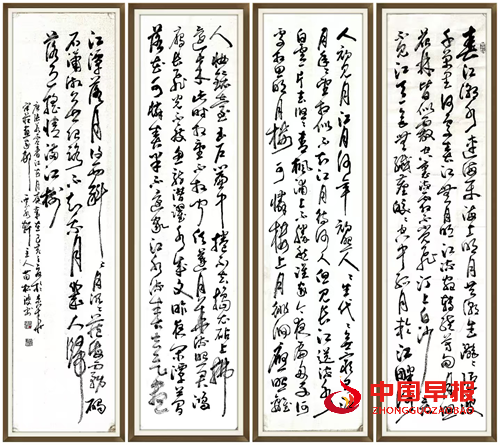 春江潮水連海平海上明月共潮生灩灩隨波
千萬里何處春江無月明江流宛轉繞芳甸月照
花林皆似霰空裏流霜不覺飛汀上白沙
看不見江天一色無纖塵皎皎空中孤月輪江畔何
人初見月江月何年初照人人生代代無窮已江
月年年望相似不知江月待何人但見長江送流水
白雲一片去悠悠青楓浦上不勝愁誰家今夜扁舟子何
處相思明月樓可憐樓上月徘徊應照離
人妝鏡臺玉戶簾中卷不去搗衣砧上拂
還來此時相望不相聞願逐月華流照君鴻
雁長飛光不度魚龍潛躍水成文昨夜閑潭夢
落花可憐春半不還家江水流春去欲盡
江潭落月復西斜斜月沉沉藏海霧碣
石瀟湘無限路不知乘月幾人歸
落月搖情滿江樹
中国早报
ZHONGGUOZAOBAO